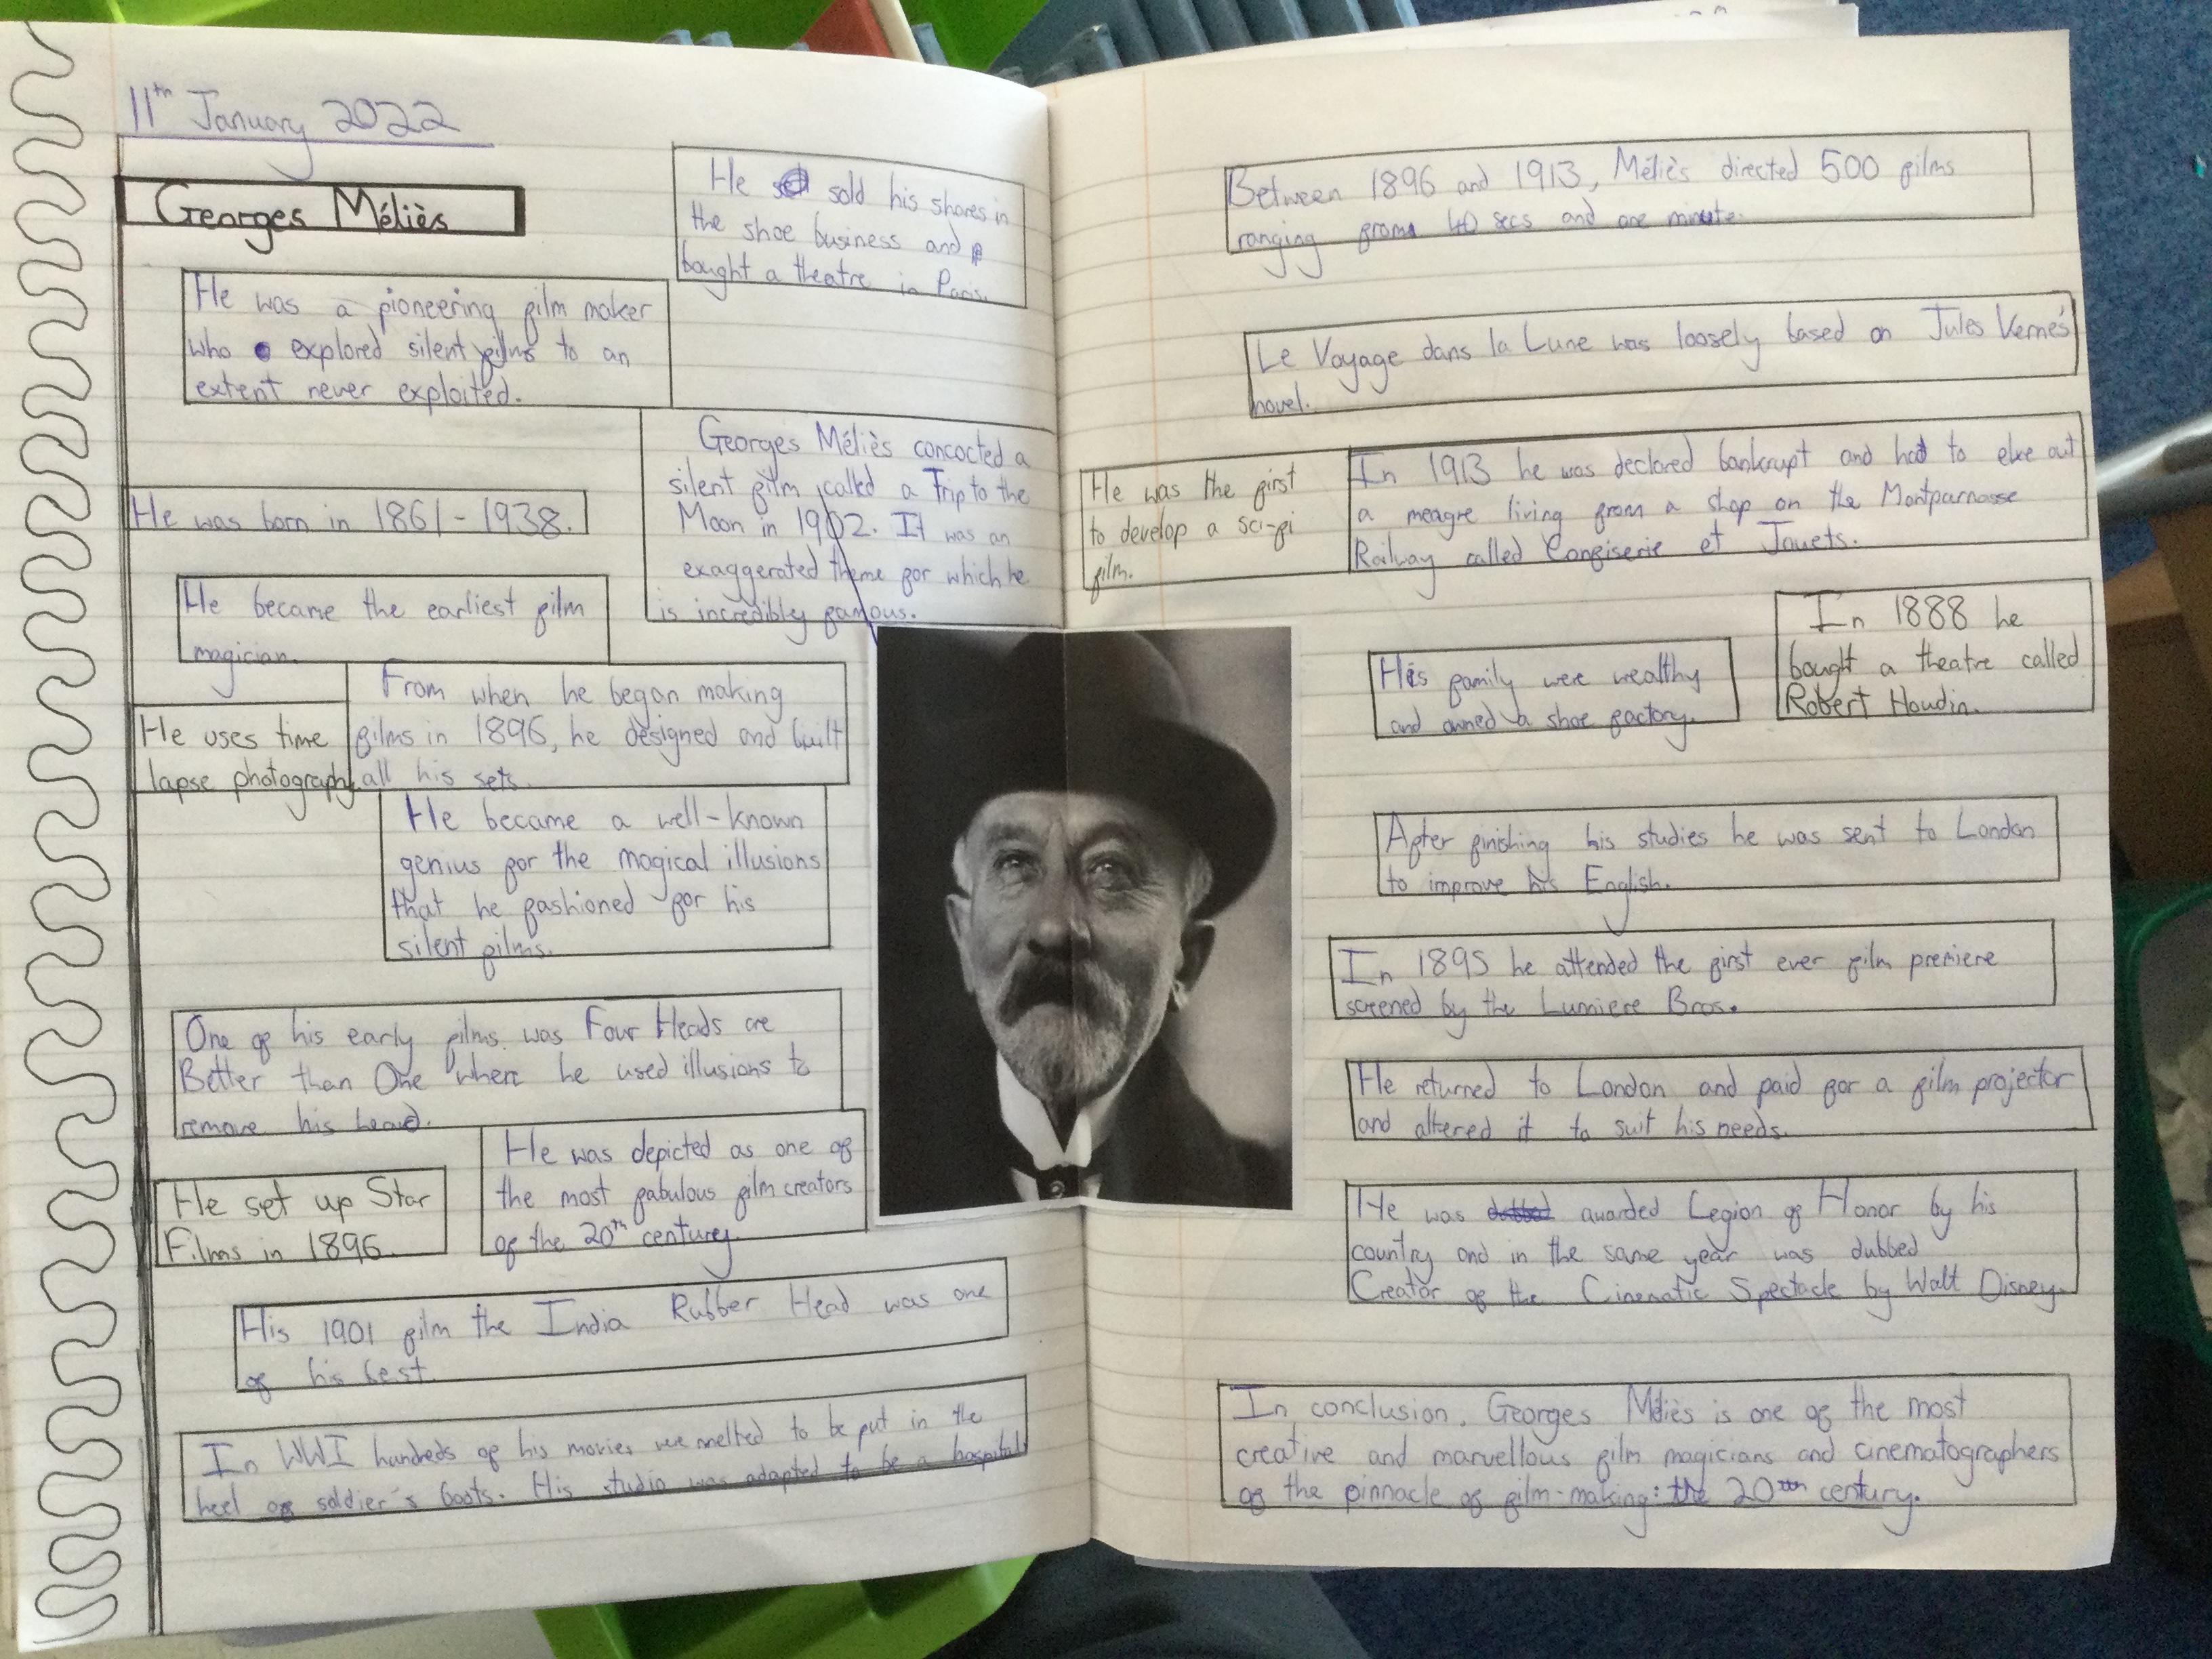 11th January 2022
Georges Méliès
He was a pioneering film maker
who explored silent films to an
extent never exploited.
He sold his shares in
the shoe business and
bought a theatre in Paris.
He was born in 1861-1938.
Georges Méliès concocted a
silent film called a Trip to the
Moon in 1902. It was an
exaggerated theme for which he
is incredibly famous.
He became the earliest film
magician.
He uses time
lapse photography.
From when he began making
films in 1896, he designed and built
all his sets.
He became a well-known
genius for the magical illusions
that he fashioned for his
silent films.
One of his early films was Four Heads are
Better than One where he used illusions to
remove his head.
He set up Star
Films in 1896.
He was depicted as one of
the most fabulous film creators
of the 20th century.
His 1901 film the India Rubber Head was one
of his best.
In WWI hundreds of his movies were melted to be put in the
heel of soldier's boots. His studio was adapted to be a hospital
Between 1896 and 1913, Méliès directed 500 films
ranging from 40 secs and one minute.
Le Voyage dans la Lune was loosely based on Jules Verne's
novel.
He was the first
to develop a sci-fi
film.
In 1913 he was declared bankrupt and had to eke out
a meagre living from a shop on the Montparnasse
Railway called Confiserie et Jouets.
His family were wealthy
and owned a shoe factory.
In 1888 he
bought a theatre called
Robert Houdin.
After finishing his studies he was sent to London
to improve his English.
In 1895 he attended the first ever film premiere
screened by the Lumiere Bros.
He returned to London and paid for a film projector
and altered it to suit his needs.
He was dubbed awarded Legion of Honor by his
country and in the same year was dubbed
Creator of the Cinematic Spectacle by Walt Disney.
In conclusion, Georges Méliès is one of the most
creative and marvellous film magicians and cinematographers
of the pinnacle of film-making: the 20th century.